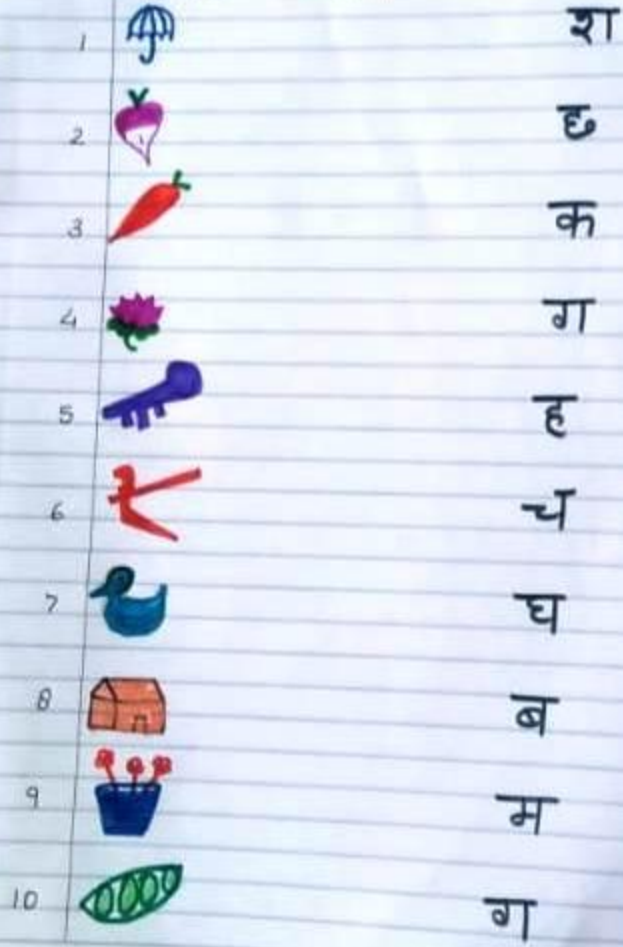 1 श
2 छ
3 क
4 ग
5 ह
6 च
7 घ
8 ब
9 म
10 ग